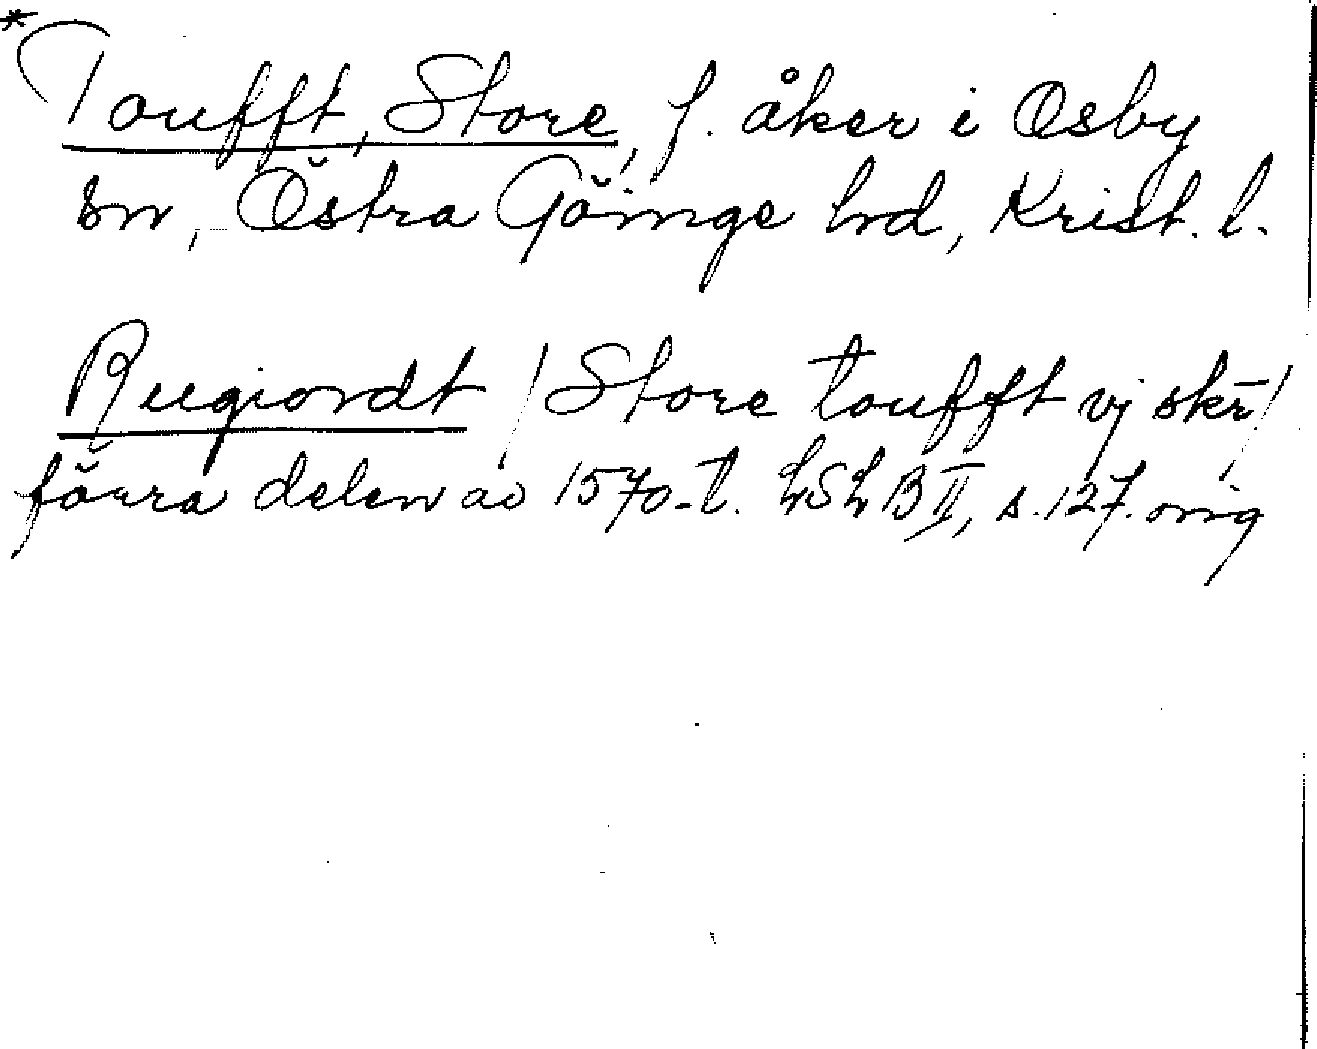 *Toufft, Store, f. åker i Osby
sn, Östra Göinge hd, Krist. l.
Rugiordt / Store toufft vj skr̄ /
förra delen av 1570-t. LSLB II, s. 127. orig